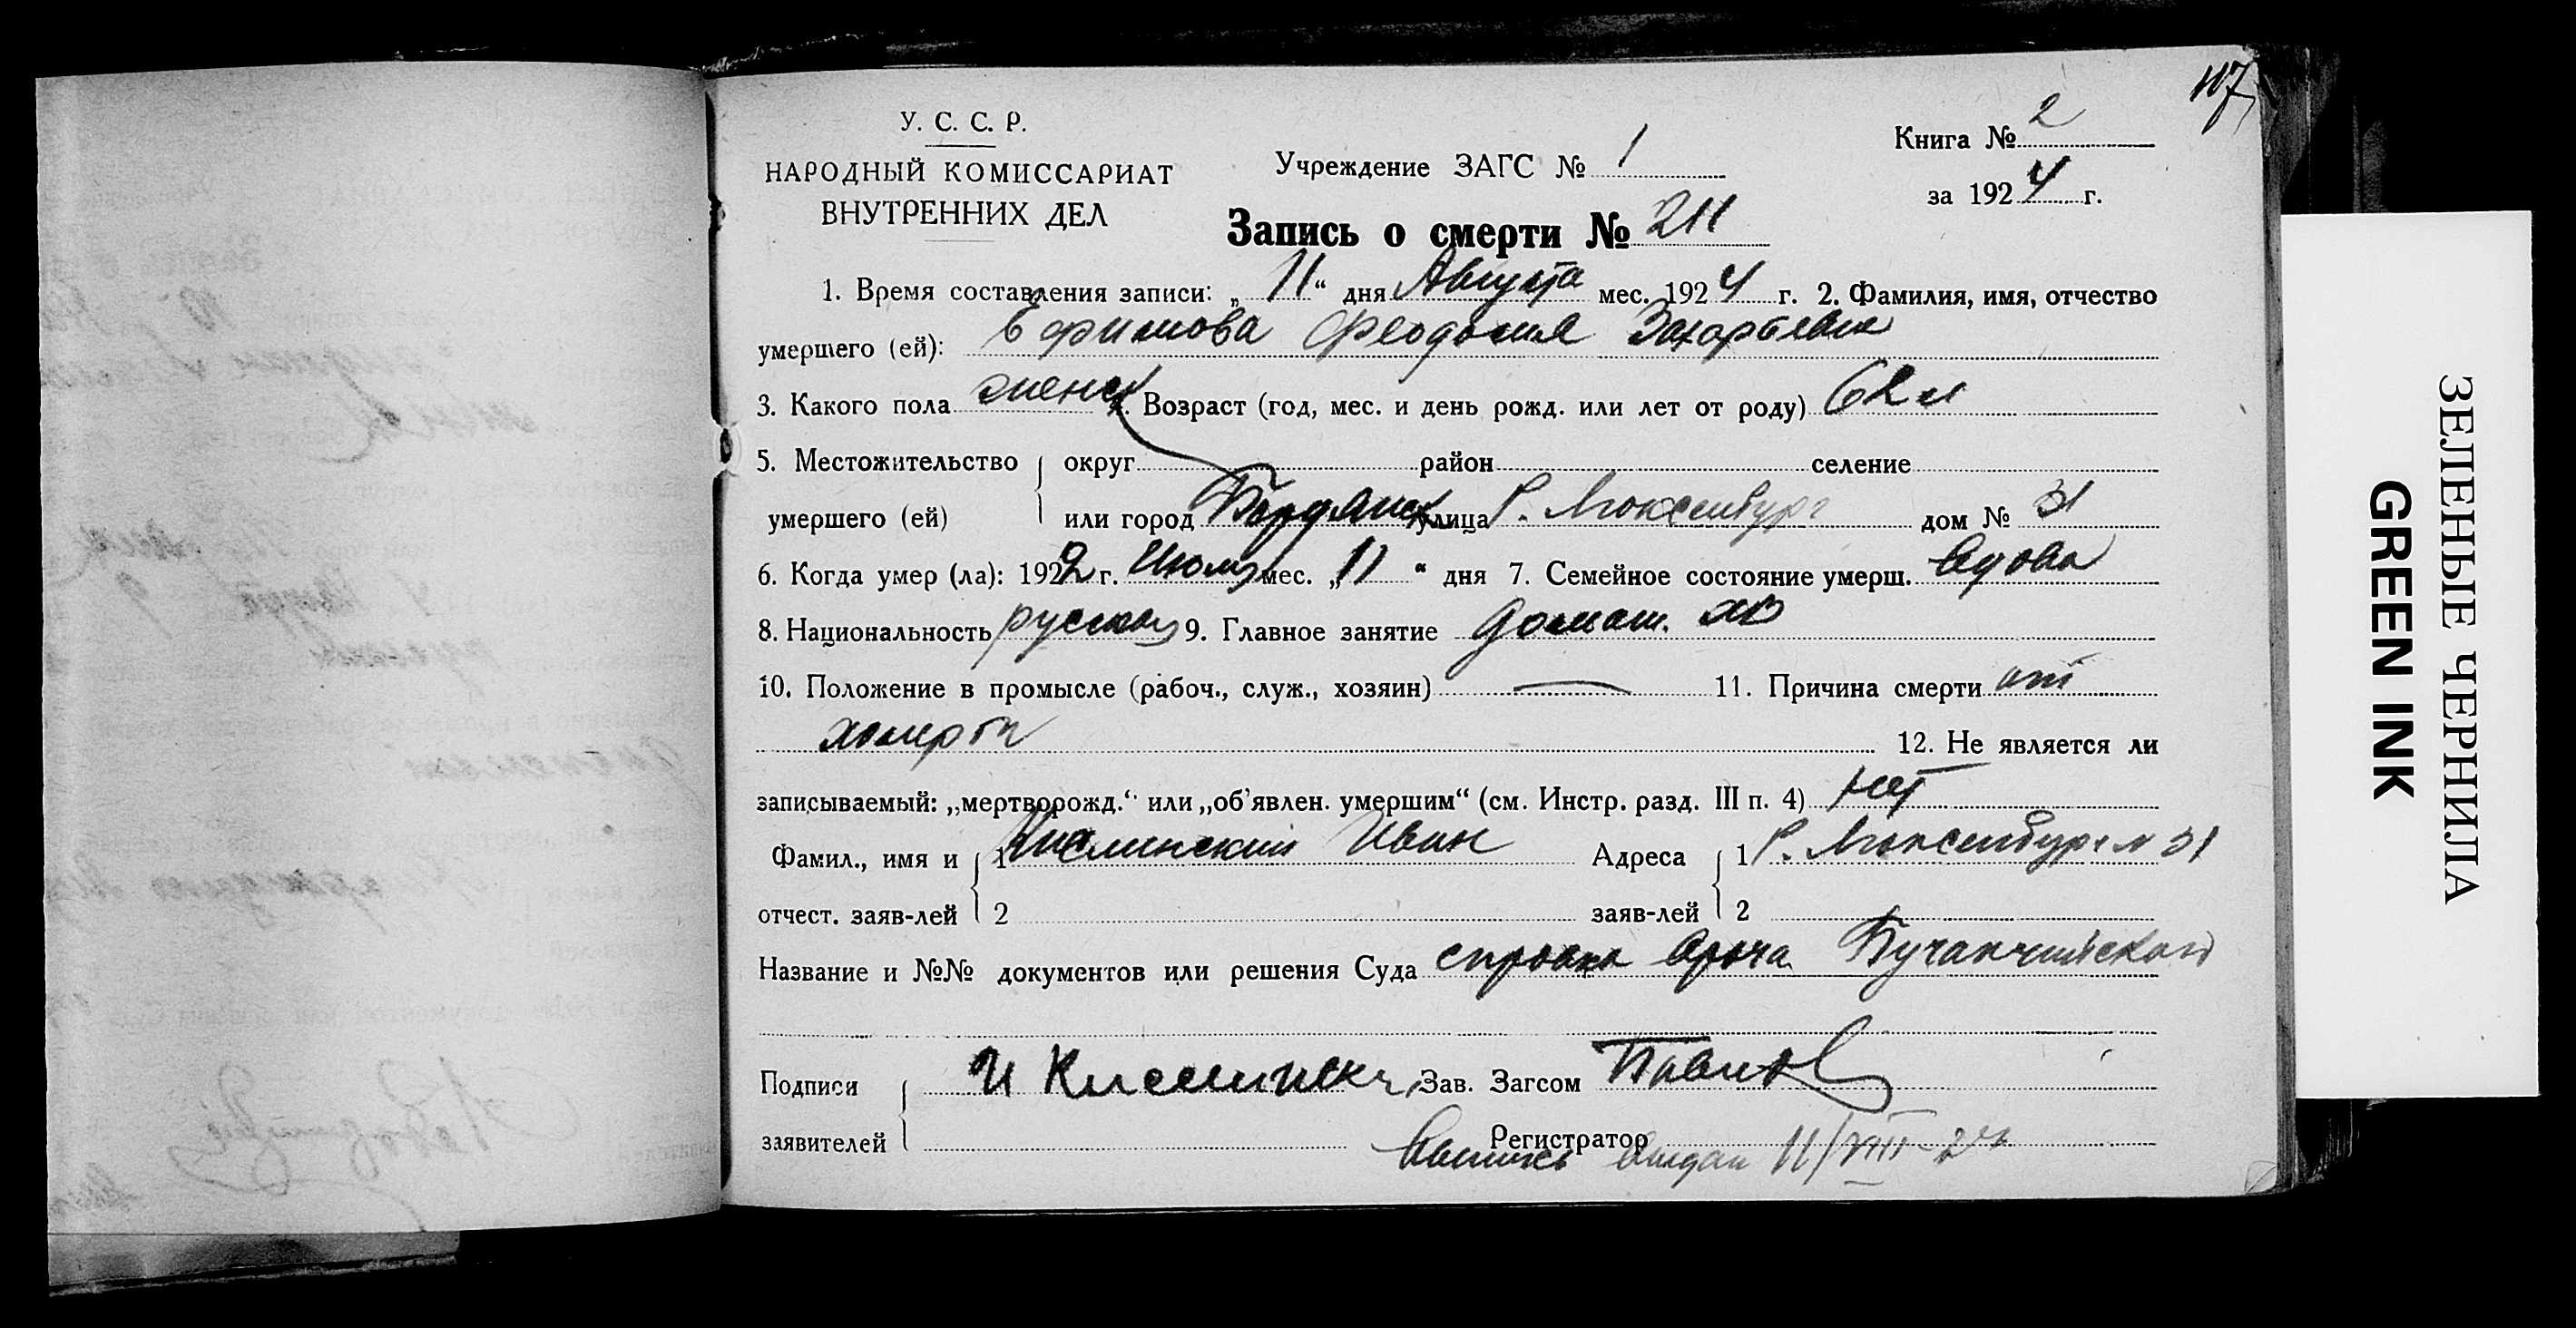 117
У. С. С. Р.
НАРОДНЫЙ КОМИССАРИАТ
ВНУТРЕННИХ ДЕЛ
Учреждение ЗАГС № 1
Книга № 2
за 1924 г.
Запись о смерти № 211
1. Время составления записи: „11“ дня Августа мес. 1924 г. 2. Фамилия, имя, отчество
умершего (ей): Ефимова Феодосия Захарьевна
3. Какого пола женск 4. Возраст (год, мес. и день рожд. или лет от роду) 62 л
5. Местожительство округ район селение
умершего (ей) или город Бердянск улица Р. Люксембург дом № 31
6. Когда умер (ла): 1922 г. мес. „11“ дня 7. Семейное состояние умерш. вдова
8. Национальность русская 9. Главное занятие домаш. хоз
10. Положение в промысле (рабоч., служ., хозяин) — 11. Причина смерти от
холеры
12. Не является ли
записываемый: „мертворожд.“ или „об'явлен. умершим“ (см. Инстр. разд. III п. 4) нет
Фамил., имя и 1 Кислинский Иван Адреса 1 Р. Люксембург № 31
отчест. заяв-лей 2 заяв-лей 2
Название и №№ документов или решения Суда справка врача
Подписи И Кислински Зав. Загсом
заявителей Регистратор
Выпись выдан 11/VIII-24
ЗЕЛЕНЫЕ ЧЕРНИЛА
GREEN INK